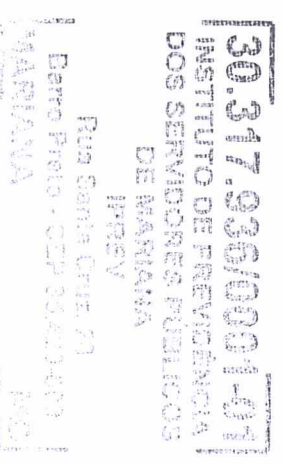 30.317.936/0001-01
INSTITUTO DE PREVIDÊNCIA
DOS SERVIDORES PÚBLICOS
DE MARIANA
IPREV
Rua Santa Cruz,
Barro Preto - CEP
MARIANA MG